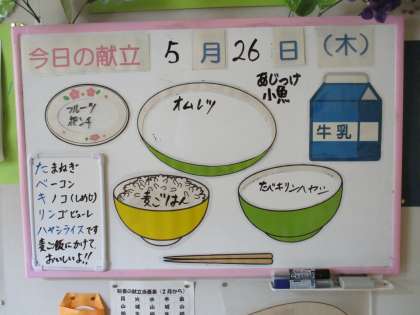 今日の献立 5月26日(木)
フルーツ
ポンチ
オムレツ
あじつけ
小魚
牛乳
麦ごはん
たべキリンハヤシ
たまねぎ
ベーコン
キノコ(しめじ)
リンゴピューレ
ハヤシライスです
麦ご飯にかけて
おいしいよ!!